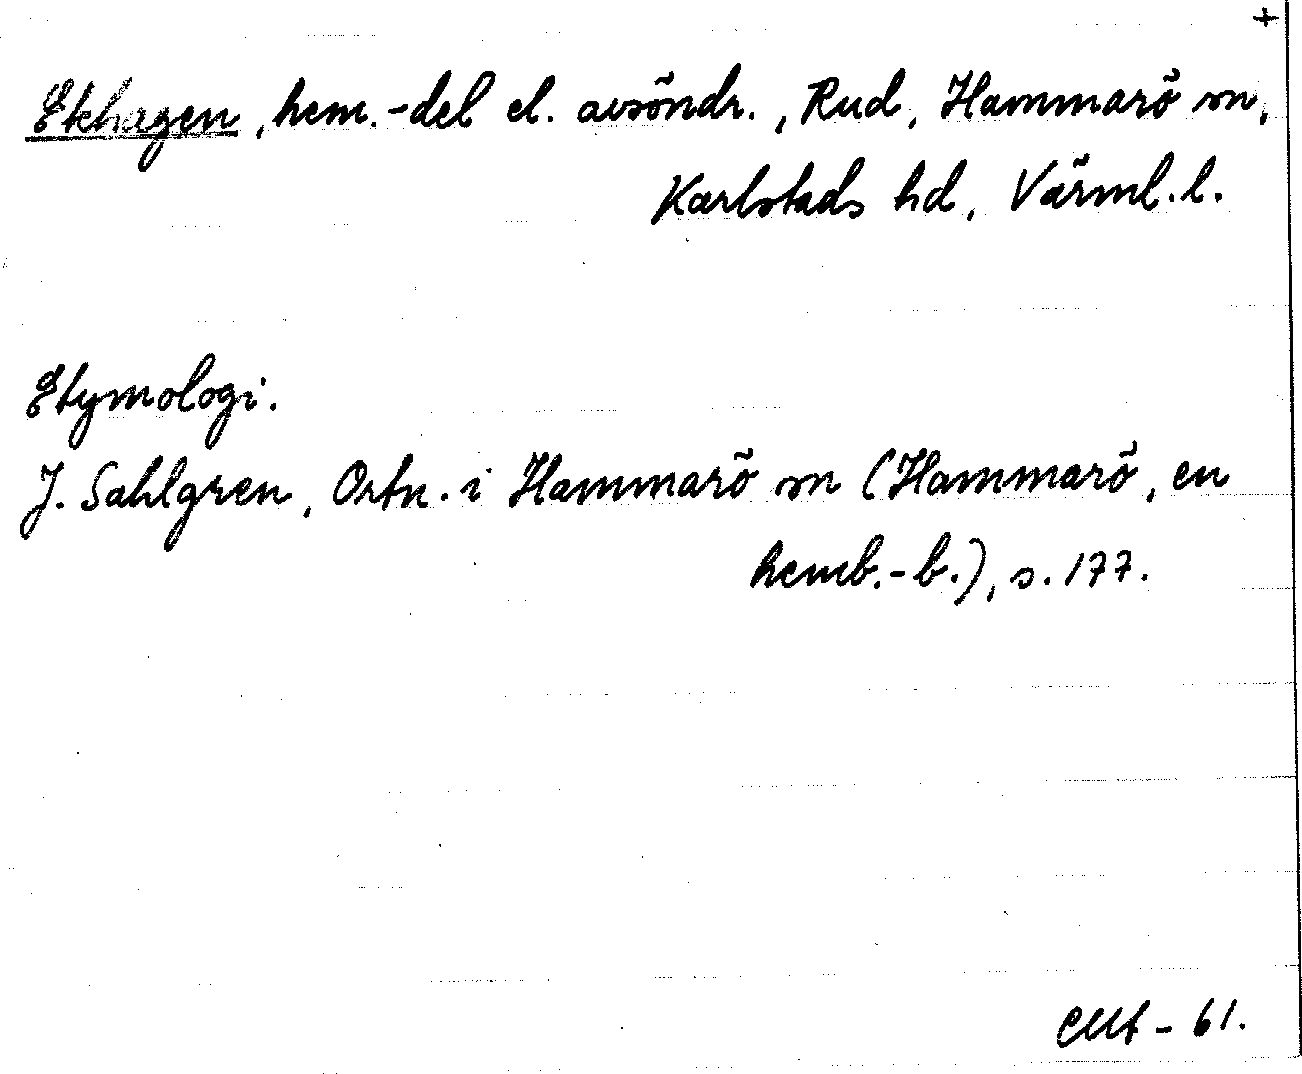 +
Ekhagen, hem.-del el. avsöndr., Rud, Hammarö sn,
Karlstads hd, Värml. l.
Etymologi.
J. Sahlgren, Ortn. i Hammarö sn (Hammarö, en
hemb.-b.), s. 177.
- 61.